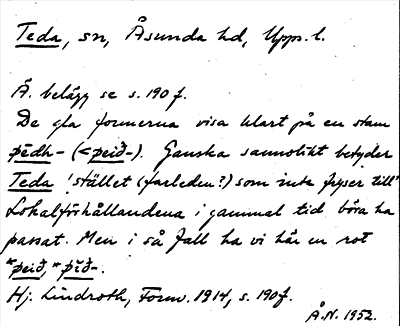 Teda, sn, Åsunda hd, Upps. l.
Ä. belägg se s. 190 f.
De gla formerna visa klart på en stam
þēdh- (<þeið-). Ganska sannolikt betyder
Teda 'stället (farleden?) som inte fryser till'
Lokalförhållandena i gammal tid böra ha
passat. Men i så fall ha vi här en rot
*þeið, *þīð-.
Hj. Lindroth, Fornv. 1914, s. 190 f.
Å.N. 1952.